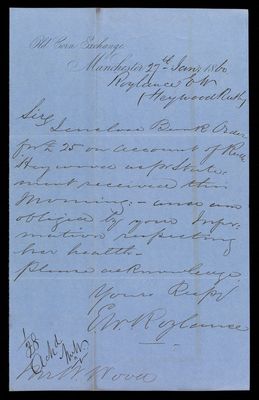 Old Corn Exchange
Manchester 27th Jany 1860
Roylance E W
(Heywood Ruth)
Sir
I enclose Bank Order
for £25 on account of Ruth
Heywood as pr State-
ment received this
Morning:- and am
obliged by your Infor-
mation respecting
her health-
please acknowledge
Yours Respy
EW Roylance
1/28
Ackd
Mr W. Wood